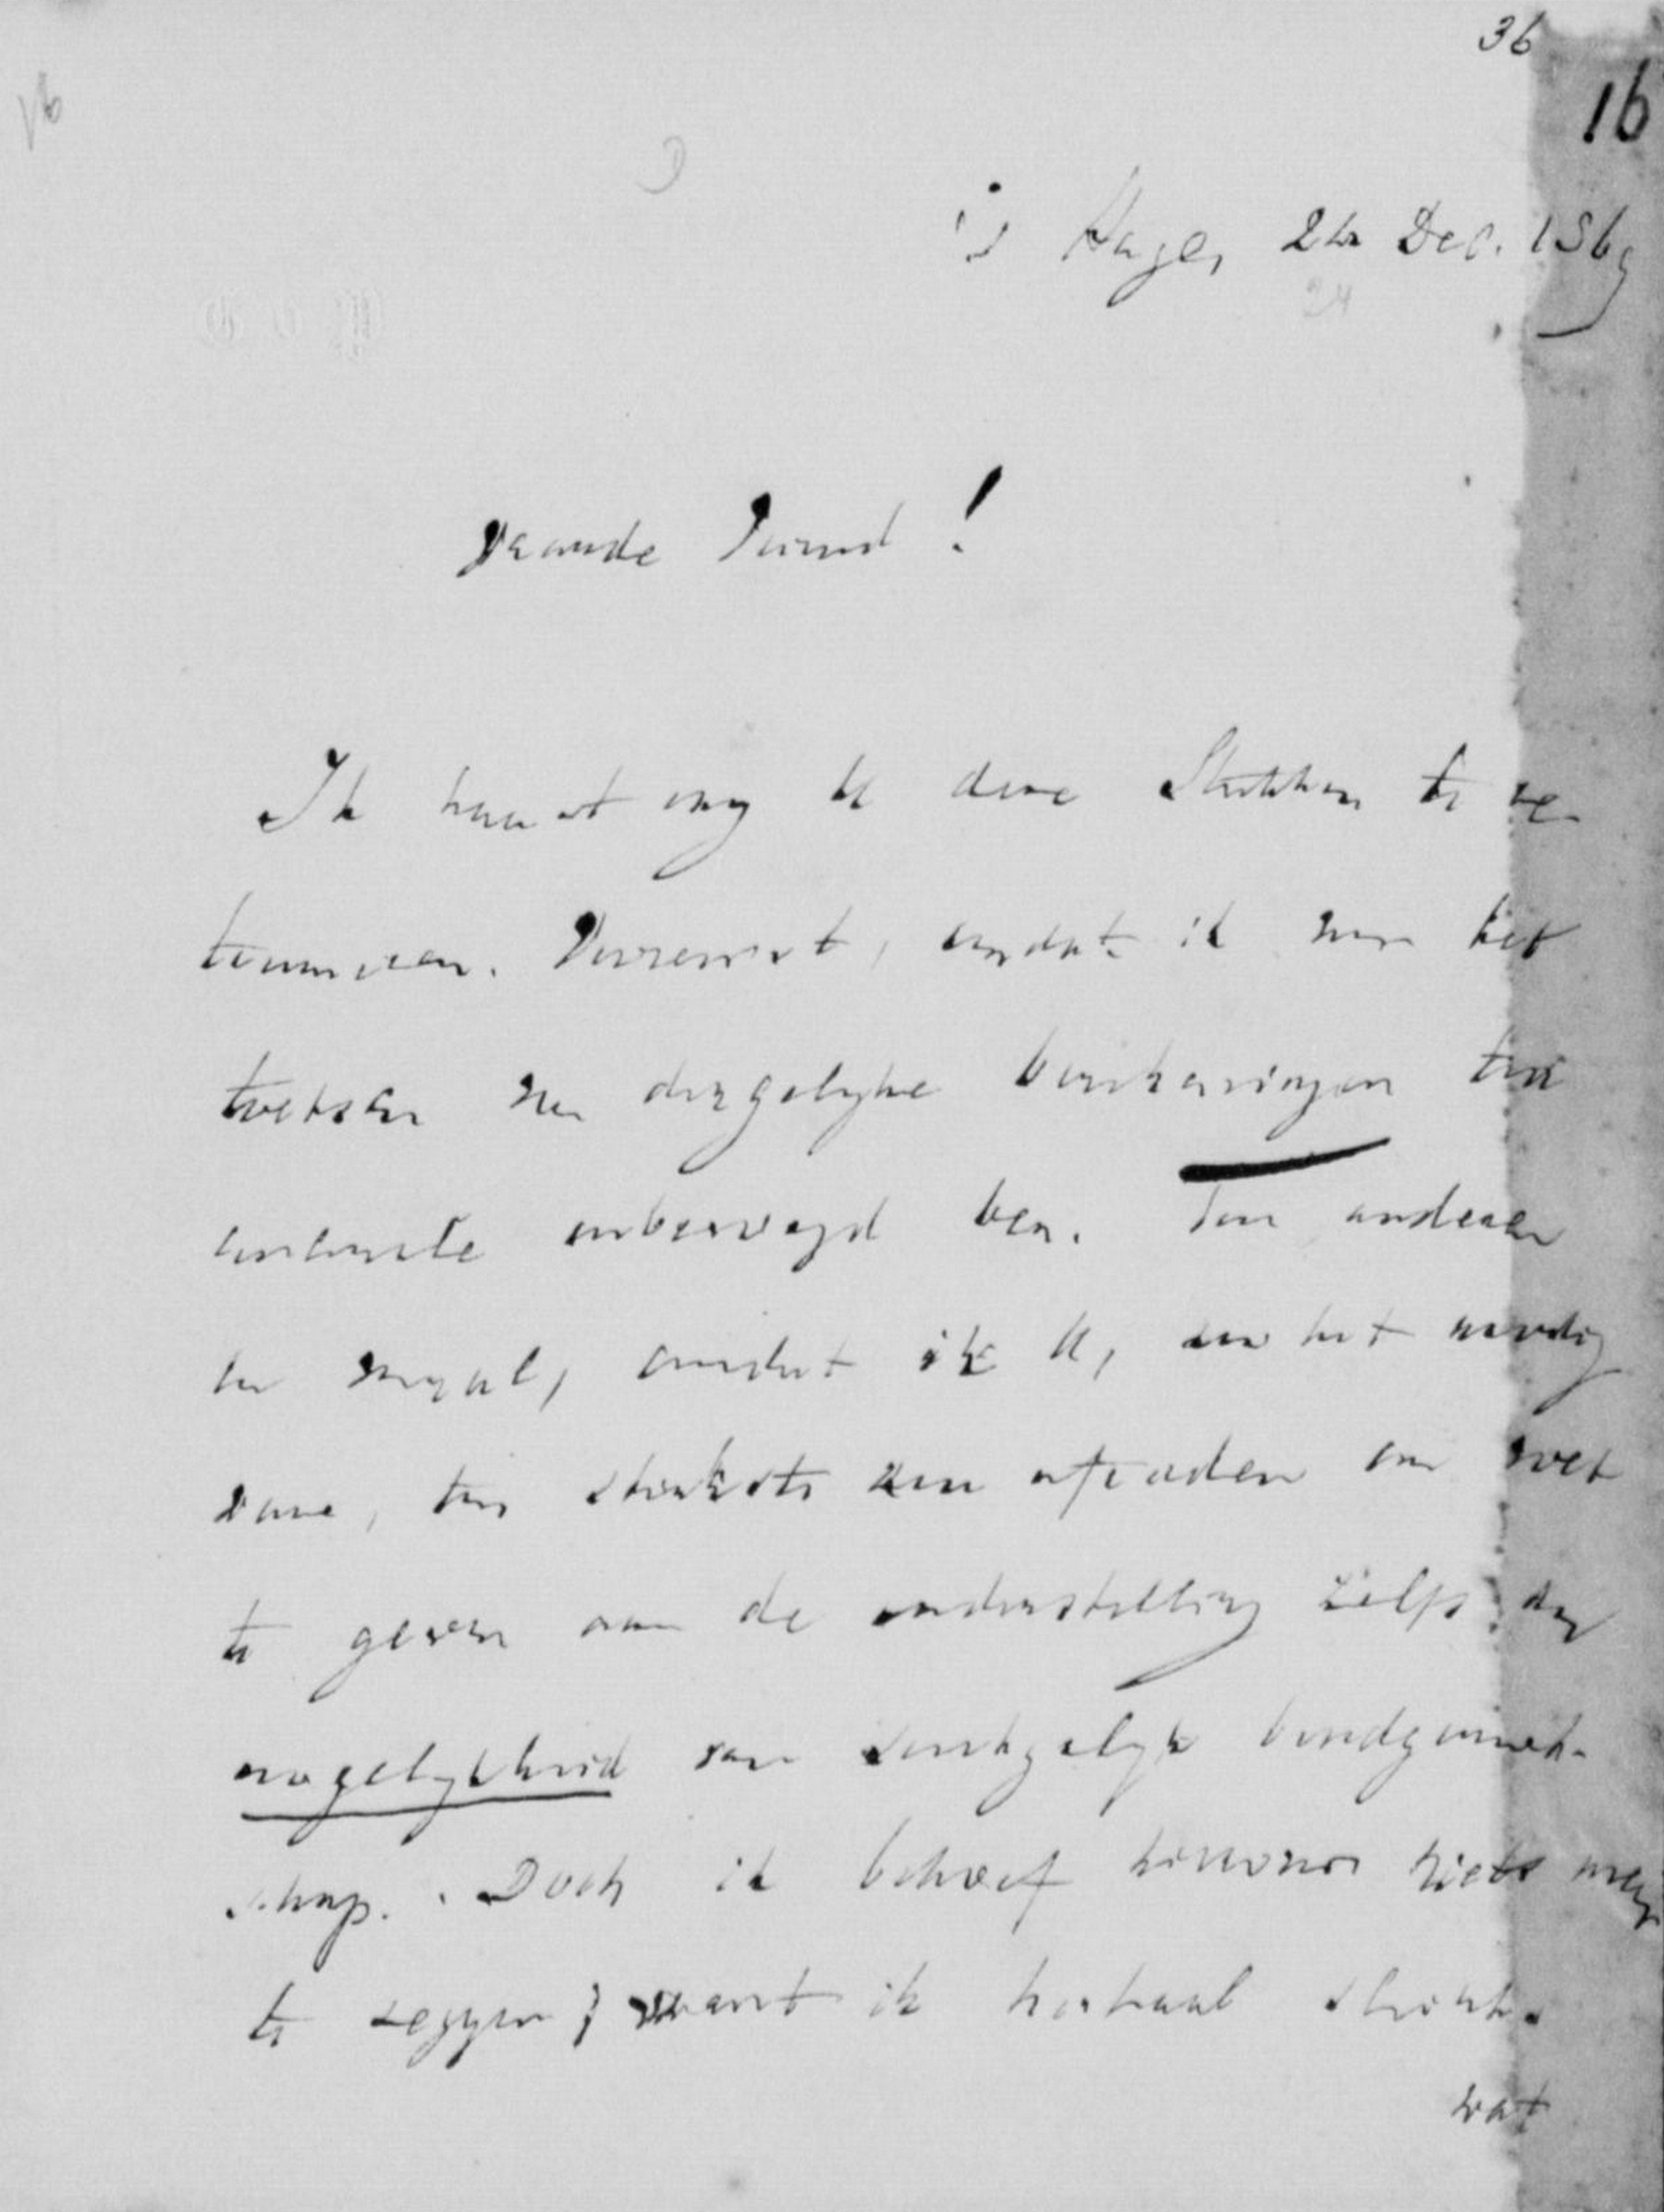 36
16
's Hage, 24 Dec. 1869
24
Waarde Vriend!
Ik haast mij U deze Stukken te re-
tourneeren. Vooreerst, omdat ik van het
toetsen van dergelijke berekeningen ten
eenemale onbevoegd ben. Ten anderen
male, omdat ik U, ware het noodig
ware, ten sterkste zou afraden om voet
te geven aan de onderstelling zelfs der
mogelijkheid van bondgenoot-
schap. Doch ik behoef hierover niets meer
te zeggen; want ik herhaal slechts
wat